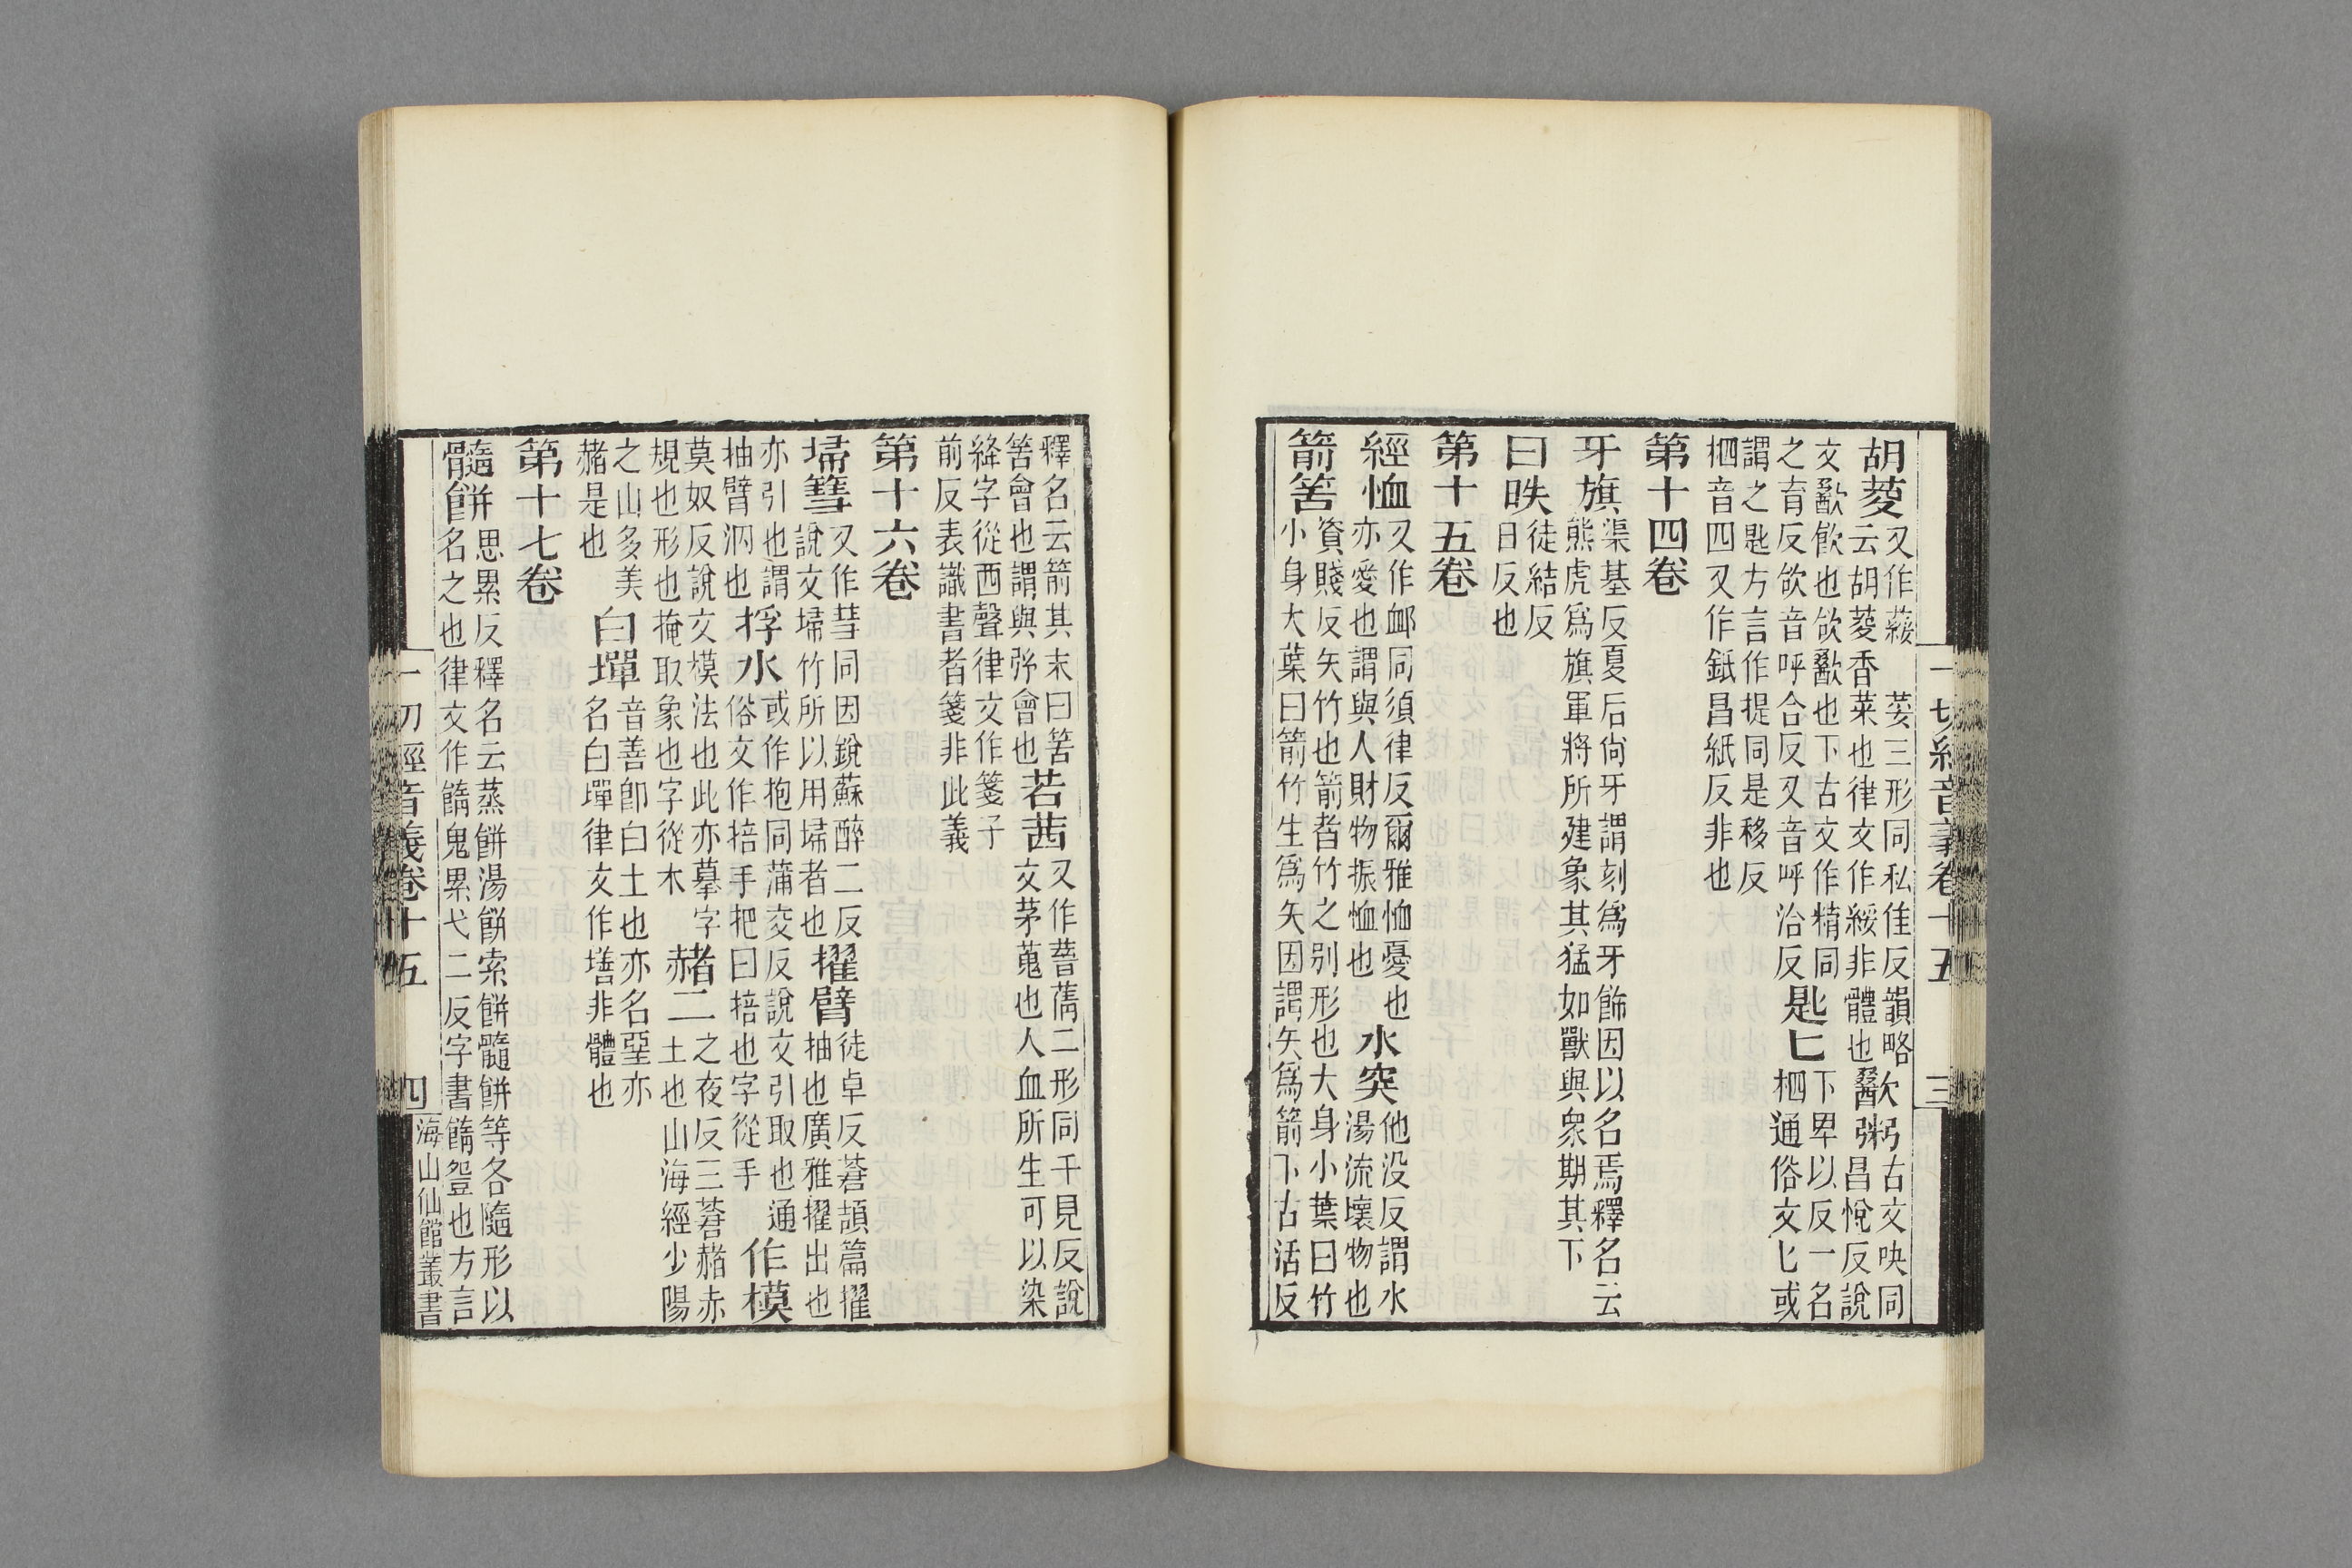 一切經音義卷十五 三
胡荽
荽三形同私隹反韻略
云胡荽香菜也律文作綏非體也
歠粥
古文吷同
昌悅反說
文歠飮也欱歠也下古文作精同
之育反欱音呼合反又音呼洽反
匙匕
下卑以反一名
柶通俗文匕或
謂之匙方言作提同是移反
柶音四又作昌紙反非也
第十四卷
牙旗
渠基反夏后尙牙謂刻爲牙飾因以名焉釋名云
熊虎爲旗軍將所建象其猛如獸與衆期其下
日昳
徒結反
日反也
第十五卷
經恤
又作卹同須律反爾雅恤憂也
亦愛也謂與人財物振恤也
水突
他没反謂水
湯流壞物也
箭筈
資賤反矢竹也箭者竹之别形也大身小葉曰竹
小身大葉曰箭竹生爲矢因謂矢爲箭下古活反
釋名云箭其末曰筈
筈會也謂與弦會也
若茜
又作蒨二形同千見反說
文茅蒐也人血所生可以染
絳字從西聲律文作箋子
前反表識書者箋非此義
第十六卷
埽篲
又作彗同因銳蘇醉二反
說文埽竹所以用埽者也
擢臂
徒卓反蒼頡篇擢
抽也廣雅擢出也
亦引也謂
抽臂也
捊水
或作抱同蒲交反說文引取也通
俗文作掊手把曰掊也字從手
作模
莫奴反說文模法也此亦摹字
規也形也掩取象也字從木
赭二
之夜反三蒼赭赤
土也山海經少陽
之山多美
赭是也
白墠
音善卽白土也亦名堊亦
名白墠律文作墡非體也
第十七卷
髓餠
思累反釋名云蒸餠湯餠索餠髓餠等各隨形以
名之也律文作䭉鬼累弋二反字書䭉䬳也方言
一切經音義卷十五 四 海山仙館叢書